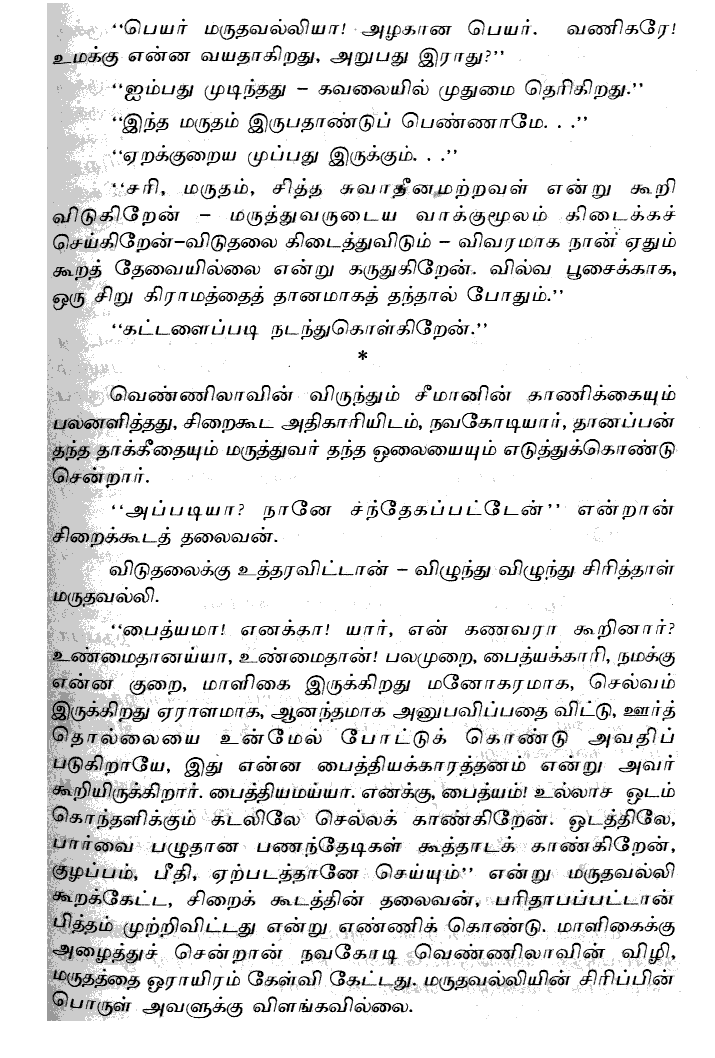 ‘‘பெயர் மருதவல்லியா! அழகான பெயர். வணிகரே!
உமக்கு என்ன வயதாகிறது, அறுபது இராது?’’
‘‘ஐம்பது முடிந்தது – கவலையில் முதுமை தெரிகிறது.’’
‘‘இந்த மருதம் இருபதாண்டுப் பெண்ணாமே. . .’’
‘‘ஏறக்குறைய முப்பது இருக்கும். . .’’
‘‘சரி, மருதம், சித்த சுவாதீனமற்றவள் என்று கூறி
விடுகிறேன் – மருத்துவருடைய வாக்குமூலம் கிடைக்கச்
செய்கிறேன்–விடுதலை கிடைத்துவிடும் – விவரமாக நான் ஏதும்
கூறத் தேவையில்லை என்று கருதுகிறேன். வில்வ பூசைக்காக,
ஒரு சிறு கிராமத்தைத் தானமாகத் தந்தால் போதும்.’’
‘‘கட்டளைப்படி நடந்துகொள்கிறேன்.’’
*
வெண்ணிலாவின் விருந்தும் சீமானின் காணிக்கையும்
பலனளித்தது, சிறைகூட அதிகாரியிடம், நவகோடியார், தானப்பன்
தந்த தாக்கீதையும் மருத்துவர் தந்த ஒலையையும் எடுத்துக்கொண்டு
சென்றார்.
‘‘அப்படியா? நானே சந்தேகப்பட்டேன்’’ என்றான்
சிறைக்கூடத் தலைவன்.
விடுதலைக்கு உத்தரவிட்டான் – விழுந்து விழுந்து சிரித்தாள்
மருதவல்லி.
‘‘பைத்யமா! எனக்கா! யார், என் கணவரா கூறினார்?
உண்மைதானய்யா, உண்மைதான்! பலமுறை, பைத்யக்காரி, நமக்கு
என்ன குறை, மாளிகை இருக்கிறது மனோகரமாக, செல்வம்
இருக்கிறது ஏராளமாக, ஆனந்தமாக அனுபவிப்பதை விட்டு, ஊர்த்
தொல்லையை உன்மேல் போட்டுக் கொண்டு அவதிப்
படுகிறாயே, இது என்ன பைத்தியக்காரத்தனம் என்று அவர்
கூறியிருக்கிறார். பைத்தியமய்யா. எனக்கு, பைத்யம்! உல்லாச ஒடம்
கொந்தளிக்கும் கடலிலே செல்லக் காண்கிறேன். ஒடத்திலே,
பார்வை பழுதான பணந்தேடிகள் கூத்தாடக் காண்கிறேன்,
குழப்பம், பீதி, ஏற்படத்தானே செய்யும்’’ என்று மருதவல்லி
கூறக்கேட்ட, சிறைக் கூடத்தின் தலைவன், பரிதாபப்பட்டான்
பித்தம் முற்றிவிட்டது என்று எண்ணிக் கொண்டு. மாளிகைக்கு
அழைத்துச் சென்றான் நவகோடி வெண்ணிலாவின் விழி,
மருதத்தை ஒராயிரம் கேள்வி கேட்டது. மருதவல்லியின் சிரிப்பின்
பொருள் அவளுக்கு விளங்கவில்லை.